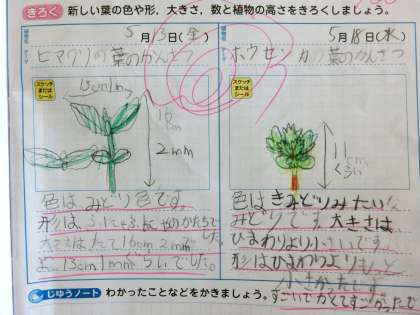 きろく 新しい葉の色や形，大きさ，数と植物の高さをきろくしましょう。
5月13日(金)
ヒマワリの葉のかんさつ
スケッチ
または
シール
13cm1mm
16
cm
2mm
色は、みどり色です。
大きさはたて16cm2mmで
よこ13cm1mmぐらいでした。
5月18日(水)
ホウセンカの葉のかんさつ
スケッチ
または
シール
11
cm
くらい
色はきみどりみたいな
みどりです。大きさは
ひまわりより小さいです。
形はひまわりよりもっと
小さかったです
じゆうノート わかったことなどをかきましょう。